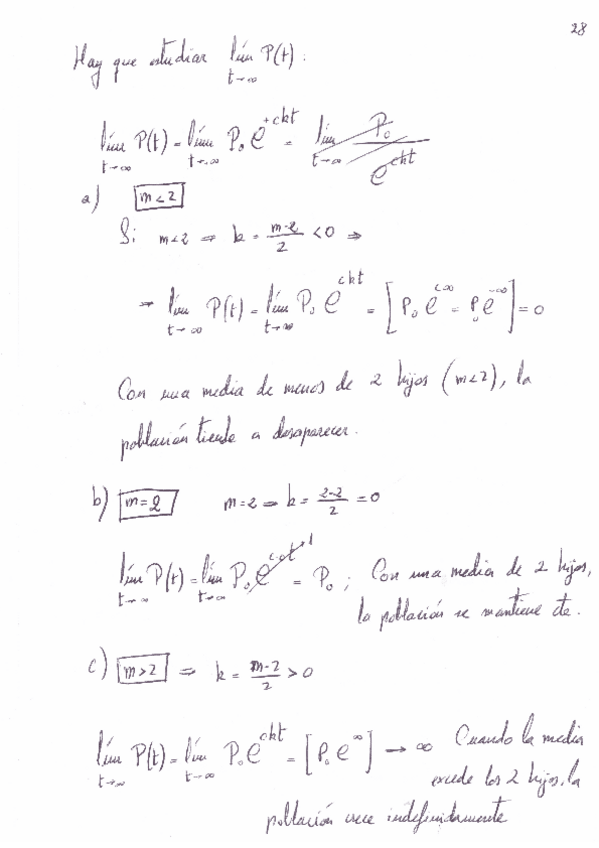 28
Hay que estudiar lím P(t) :
t→∞
lím P(t) = lím P₀ e^{+ckt} = lím P₀ / e^{ckt}
t→∞ t→∞ t→∞
a) m<2
Si m<2 ⇒ k = (m-2)/2 < 0 ⇒
→ lím P(t) = lím P₀ e^{ckt} = [P₀ e = P₀ e^{-∞}] = 0
t→∞ t→∞
Con una media de menos de 2 hijos (m<2), la
población tiende a desaparecer.
b) m=2 m=2 ⇒ k = (2-2)/2 = 0
lím P(t) = lím P₀ e^{c·0·t} → 1 = P₀ ; Con una media de 2 hijos,
t→∞ t→∞
la población se mantiene cte.
c) m>2 ⇒ k = (m-2)/2 > 0
lím P(t) = lím P₀ e^{ckt} = [P₀ e^{∞}] → ∞ Cuando la media
t→∞ t→∞
excede los 2 hijos, la
población crece indefinidamente